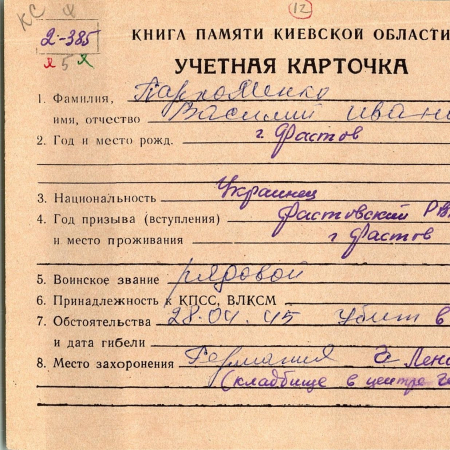 КС
12
2-385
5
КНИГА ПАМЯТИ КИЕВСКОЙ ОБЛАСТИ
УЧЕТНАЯ КАРТОЧКА
1. Фамилия, Пархоменко
имя, отчество Василий Иван
2. Год и место рожд. г. Фастов
3. Национальность Украинец
4. Год призыва (вступления) Фастовский РВ
и место проживания г Фастов
5. Воинское звание рядовой
6. Принадлежность к КПСС, ВЛКСМ
7. Обстоятельства 28.04.45 Убит в
и дата гибели
8. Место захоронения Германия
(кладбище в центре